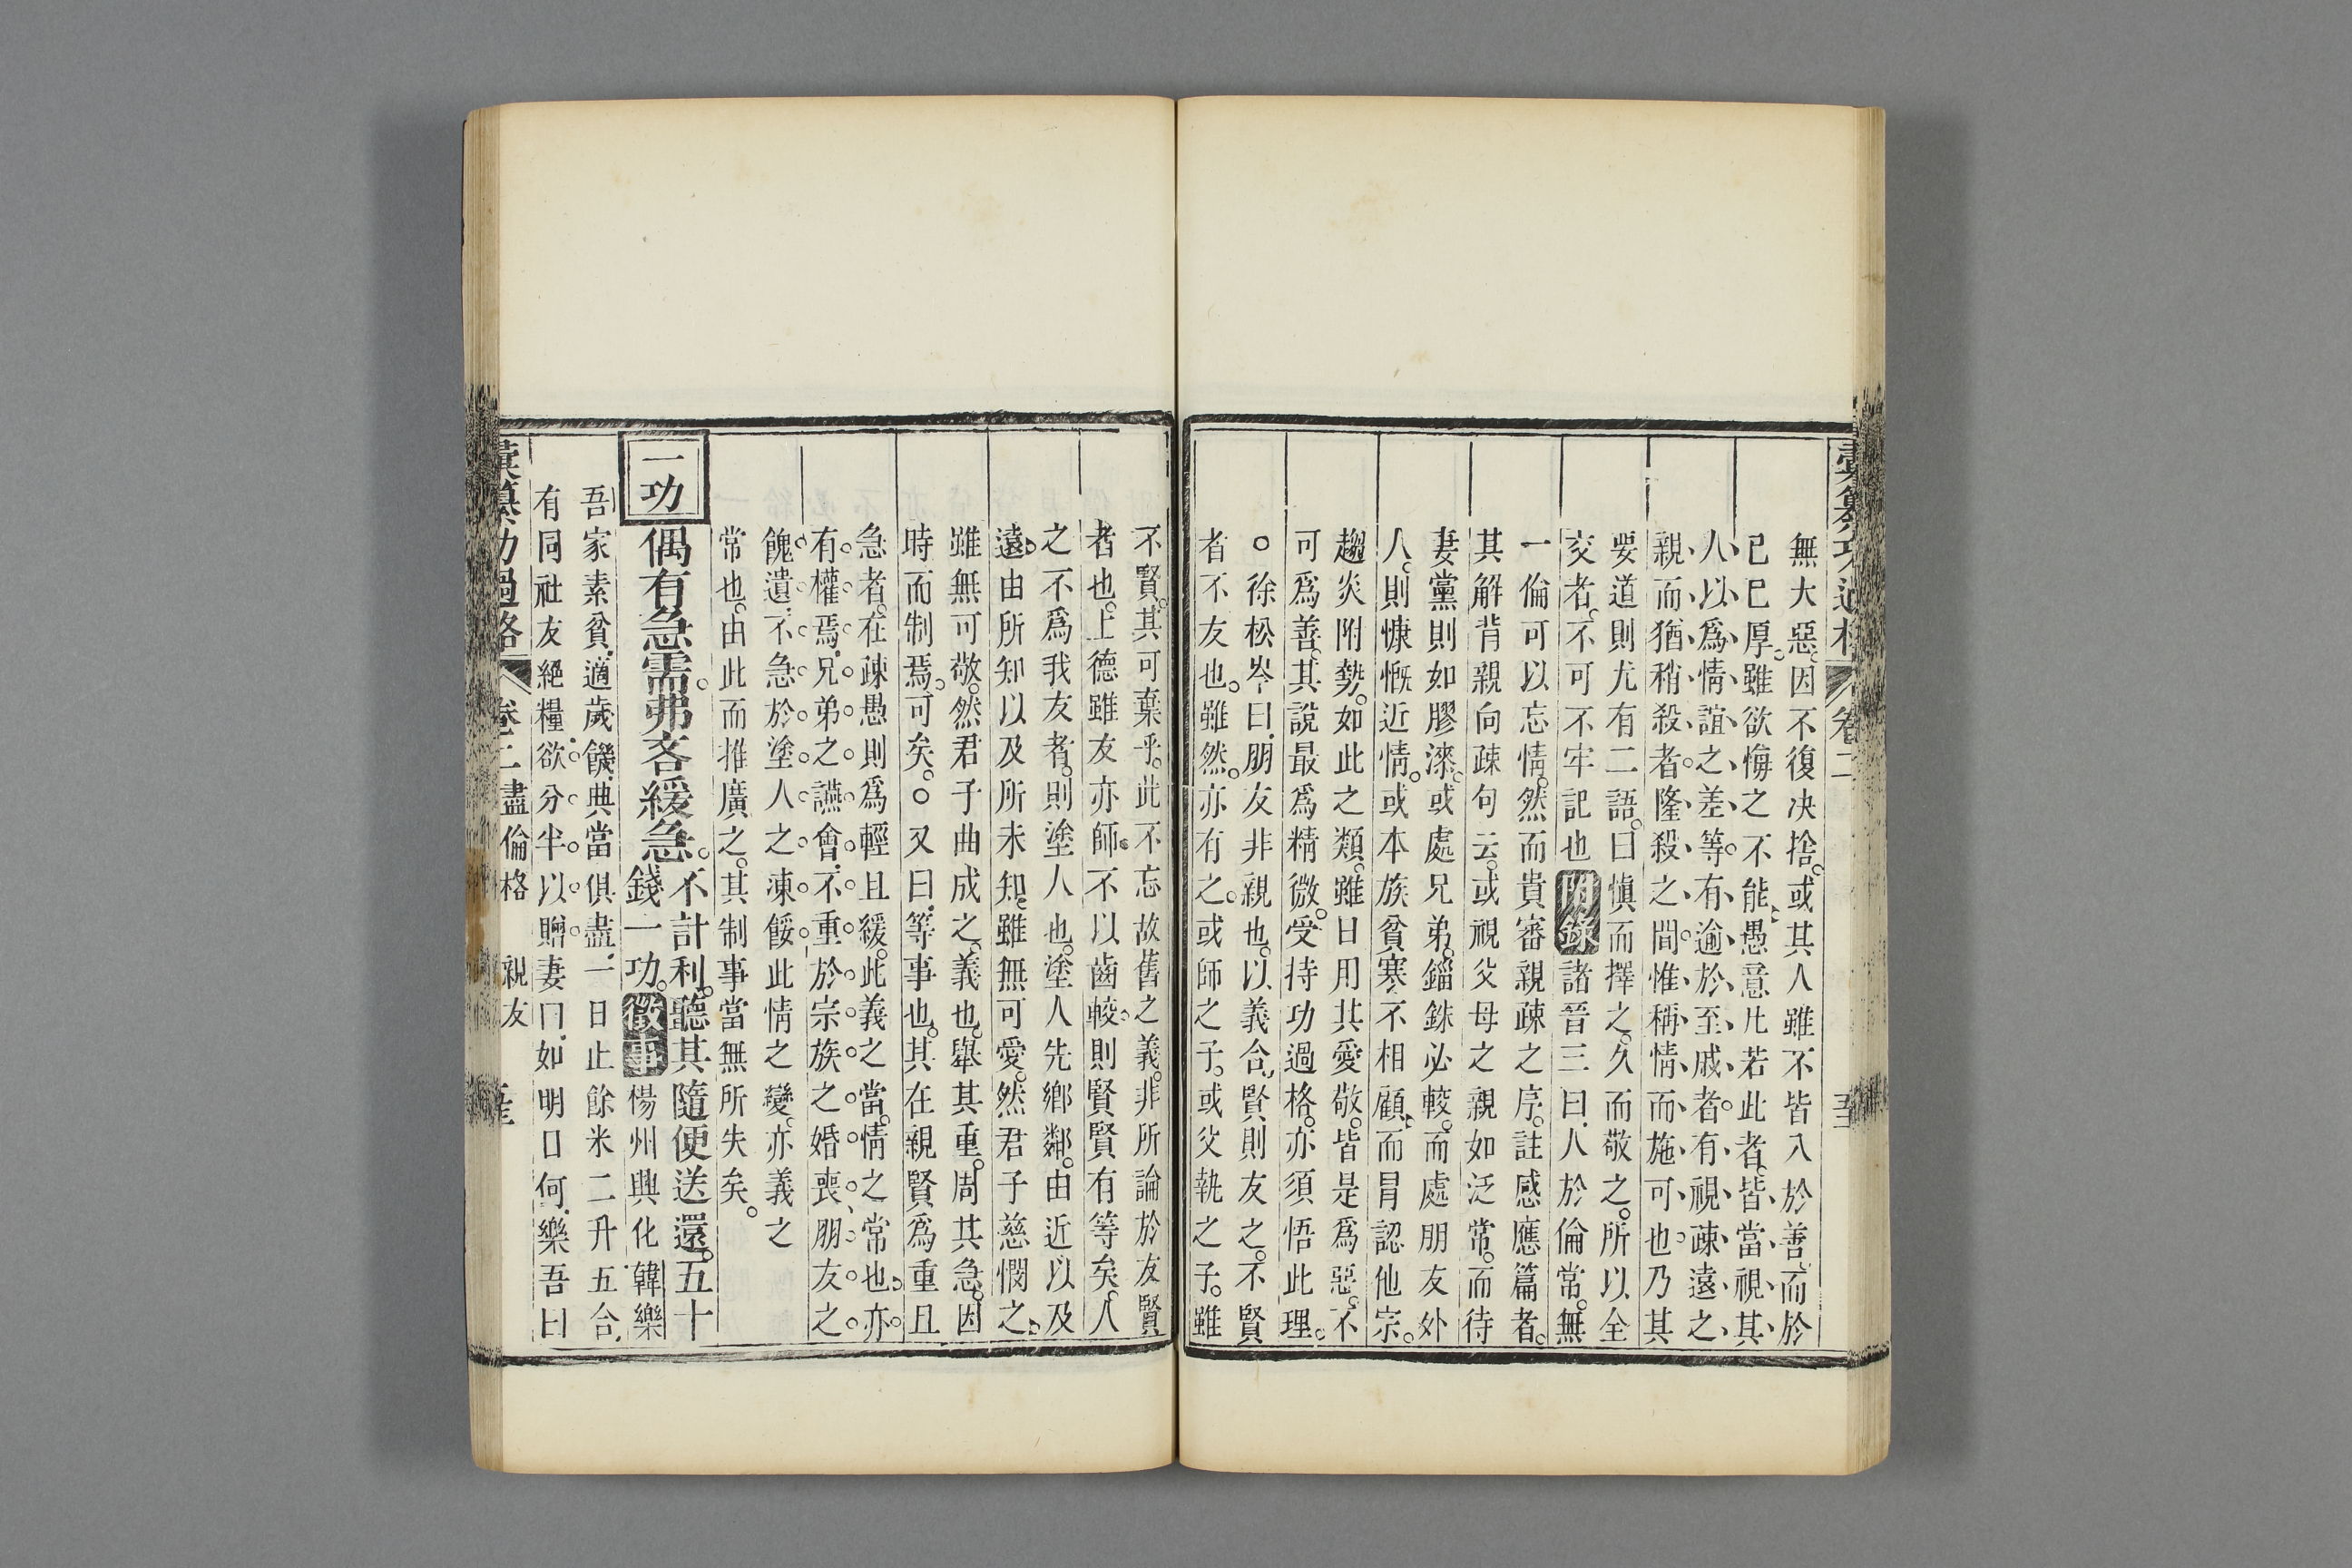 彙纂功過格 卷二
無大惡。因不復决捨。或其人雖不皆入於善。而於
已已厚。雖欲悔之不能。愚意凡若此者。皆當視其
人以爲情誼之差等。有逾於至戚者。有視疎遠之
親而猶稍殺者。隆殺之間。惟稱情而施可也。乃其
要道則尤有二語。曰愼而擇之。久而敬之。所以全
交者。不可不牢記也附錄諸晉三曰。人於倫常。無
一倫可以忘情。然而貴審親疎之序。註感應篇者。
其解背親向疎句云。或視父母之親如泛常。而待
妻黨則如膠漆。或處兄弟。錙銖必較。而處朋友外
人。則慷慨近情。或本族貧寒。不相顧。而冒認他宗。
趨炎附勢。如此之類。雖日用其愛敬。皆是爲惡。不
可爲善。其說最爲精微。受持功過格。亦須悟此理。
○徐松岑曰。朋友非親也。以義合。賢則友之。不賢
者不友也。雖然。亦有之。或師之子。或父執之子。雖
不賢。其可棄乎。此不忘故舊之義。非所論於友賢
者也。上德雖友亦師。不以齒較。則賢賢有等矣。人
之不爲我友者。則塗人也。塗人先鄕鄰。由近以及
遠。由所知以及所未知。雖無可愛。然君子慈憫之。
雖無可敬。然君子曲成之。義也。舉其重。周其急。因
時而制焉。可矣。○又曰。等事也。其在親賢爲重且
急者。在疎愚則爲輕且緩。此義之當。情之常也。亦
有權焉。兄弟之讌會。不重於宗族之婚喪。朋友之
餽遺。不急於塗人之凍餒。此情之變。亦義之
常也。由此而推廣之。其制事當無所失矣。
一功
偶有急需。弗吝緩急。不計利。聽其隨便送還。五十
錢一功。徵事楊州興化韓樂
吾家素貧。適歲饑。典當俱盡。一日止餘米二升五合。
有同社友絕糧。欲分半以贈。妻曰。如明日何。樂吾曰
彙纂功過格 卷二 盡倫格 親友